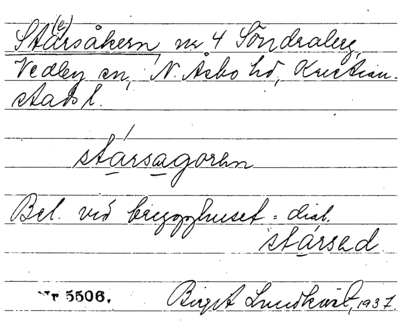 Stå(e)rsåkern nr 4 Söndraberg,
Vedby sn, N. Åsbo hd, Kristian-
stads l.
stársagoren
Bel. vid brygghuset = dial.
stársad
Nr 5506. Birgit Lundkvist, 1937.